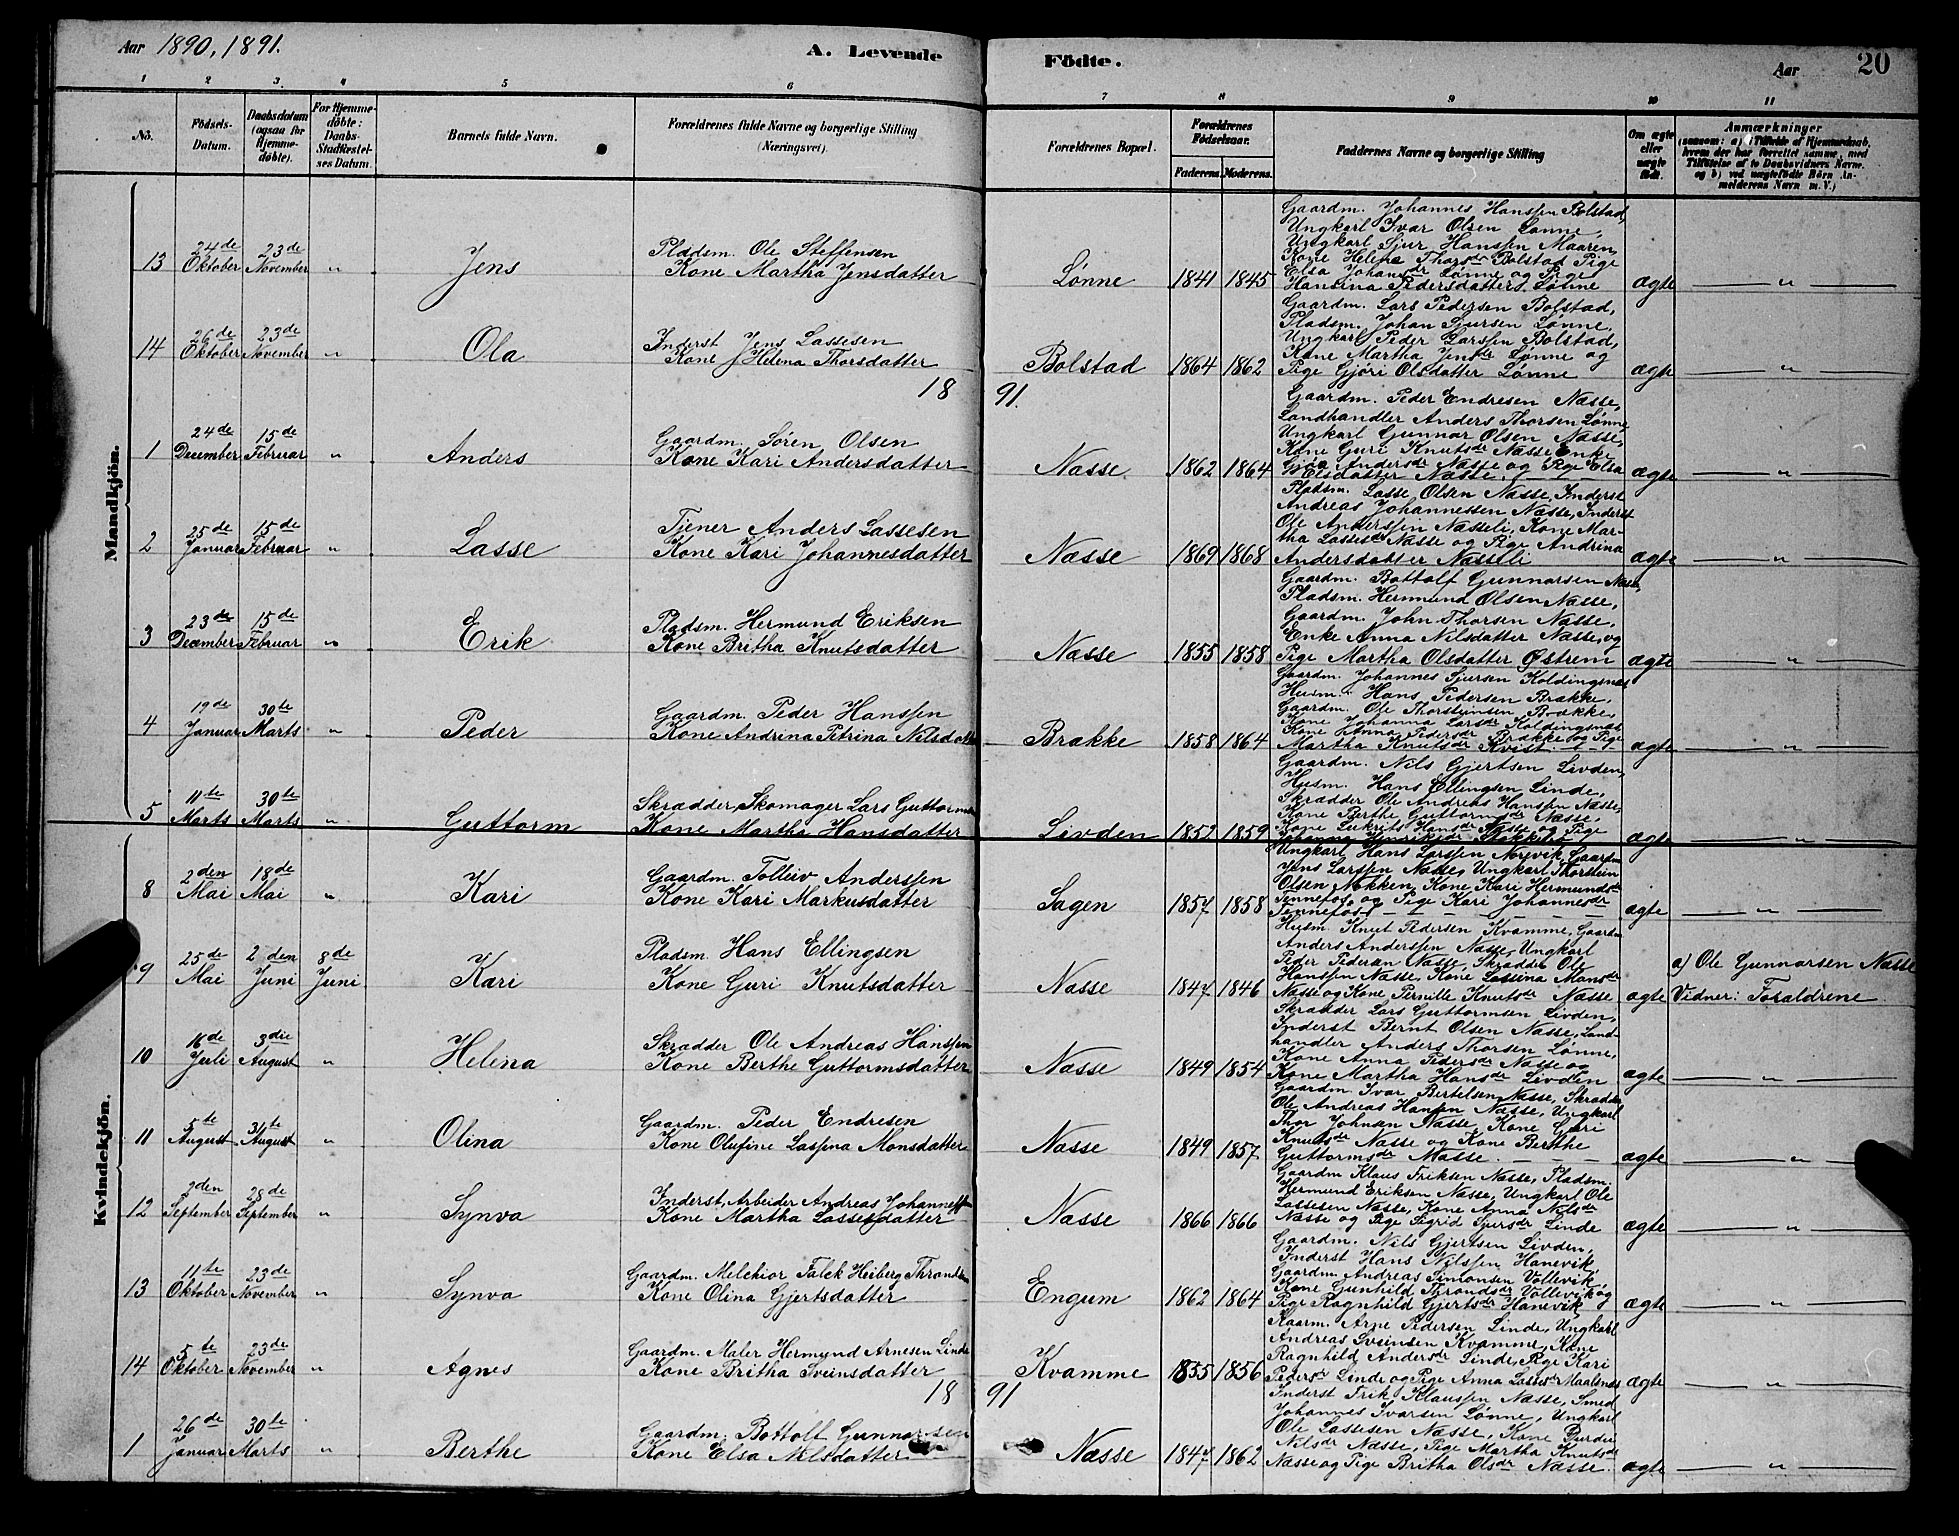 Aar 1890, 1891.
A. Levende
Födte.
Aar
20
1 2 3. 4 5 6 7 8 9 10 11
No.
Födsels-Datum.
Daabsdatum (ogsaa for Hjemme-döbte).
For Hjemme-döbte: Daabs-Stadfæstel-ses Datum.
Barnets fulde Navn.
Forældrenes fulde Navne og borgerlige Stilling (Næringsvei).
Forældrenes Bopæl.
Forældrenes Födselsaar.
Faderens. Moderens.
Faddernes Navne og borgerlige Stilling
Om ægte eller uægte födt.
Anmærkninger
(saasom: a) i Tilfælde af Hjemmedaab, hvem der har forrettet samme, med Tilföielse af to Daabsvidners Navne, og b) ved uægtefödte Börn An-melderens Navn m. V.)
Mandkjön.
13 24de Oktober 23de November " Jens
Pladsm. Ole Steffensen
Kone Martha Jensdatter
Lønne 1841 1845
Gaardm. Johannes Hanssen Bolstad,
Ungkarl Ivar Olsen Lønne,
Ungkarl Sjur Hanssen Maaren,
Kone Helene Thorsdr Bolstad Pige
Elsa Johansdr Lønne og Pige
Hansina Pedersdatter Lønne
ægte "
14 26de Oktober 23de November " Ola
Inderst Jens Lassesen
Kone Helena Thorsdatter
Bolstad 1864 1862
Gaardm. Lars Pedersen Bolstad,
Pladsm. Johan Sjursen Lønne,
Ungkarl Peder Larssen Bolstad,
Kone Martha Jensdr Lønne og
Pige Gjøri Olsdatter Lønne
ægte "
18 91.
1 24de December 15de Februar " Anders
Gaardm. Søren Olsen
Kone Kari Andersdatter
Næsse 1862 1864
Gaardm. Peder Endresen Næsse,
Landhandler Anders Thorsen Lønne
Ungkarl Gunnar Olsen Næsse,
Kone Guri Knutsdr Næsse Enke
Gjøa Andersdr Næsse og Pige Elsa
Elsdatter Næsse.
ægte "
2 25de Januar 15de Februar " Lasse
Tjener Anders Lassesen
Kone Kari Johannesdatter
Næsse 1869 1868
Pladsm. Lasse Olsen Næsse, Inderst
Andreas Johannessen Næsse, Inderst
Ole Anderssen Næsseli, Kone Mar-
tha Lassesdr Næsse og Pige Andrina
Andersdatter Næsseli
ægte "
3 23de December 15de Februar " Erik
Pladsm. Hermund Eriksen
Kone Britha Knutsdatter
Næsse 1855 1858
Gaardm. Bottolf Gunnarsen Næsse,
Pladsm. Hermund Olsen Næsse,
Gaardm. John Thorsen Næsse,
Enke Anna Nilsdatter Næsse, og
Pige Martha Olsdatter Østrem
ægte "
4 19de Januar 30te Marts " Peder
Gaardm. Peder Hanssen
Kone Andrina Petrina Nilsdatter
Brække 1858 1864
Gaardm. Johannes Sjursen Koldingsnæs
Husm. Hans Pedersen Brække,
Gaardm. Ole Thorsteinsen Brække,
Kone Johanna Larsdr Koldingsnæs
Kone Anna Pedersdr Brække og Pige
Martha Knutsdr Kvist.
ægte "
5 11te Marts 30te Marts " Guttorm
Skrædder, Skomager Lars Guttormsen
Kone Martha Hansdatter
Livden 1852 1859
Gaardm. Nils Gjertsen Livden,
Husm. Hans Ellingsen Linde,
Skrædder Ole Andreas Hanssen Næsse,
Kone Berthe Guttormsdr Næsse,
Kone Hansdr Næsse og Pige
Johanne Henriksdr
ægte "
Kvindekjön.
8 2den Mai 18de Mai " Kari
Gaardm. Tolleiv Anderssen
Kone Kari Markusdatter
Sagen 1857 1858
Ungkarl Hans Larssen Norevik, Gaardm
Jens Larssen Næsse, Ungkarl Thorstein
Olsen Nøkken, Kone Kari Hermundsdr
Tennefos, og Pige Kari Johannesdr
Tennefos
ægte "
9 25de Mai 2den Juni 8de Juni Kari
Pladsm. Hans Ellingsen
Kone Guri Knutsdatter
Næsse 1847 1846
Husm. Knut Pedersen Kvamme, Gaardm
Anders Anderssen Næsse, Ungkarl
Peder Pedersen Næsse, Skrædder Ole
Hanssen Næsse, Kone Lassina Monsdr
Næsse og Kone Pernille Knutsdr Næsse
ægte
a) Ole Gunnarsen Næsse
Vidner: Forældrene
10 16de Juli 3die August " Helena
Skrædder Ole Andreas Hanssen
Kone Berthe Guttormsdatter
Næsse 1849 1854
Skrædder Lars Guttormsen Livden,
Inderst Bernt Olsen Næsse, Land-
handler Anders Thorsen Lønne,
Kone Anna Pedersdr Næsse og
Kone Martha Hansdr Livden
ægte "
11 5te August 31te August " Olina
Gaardm. Peder Endresen
Kone Olufine Lassina Monsdatter
Næsse 1849 1857
Gaardm Ivar Bertelsen Næsse, Skrædder
Ole Andreas Hansen Næsse, Ungkarl
Thor Johnan Næsse, Kone Guri
Knutsdr Næsse og Kone Berthe
Guttormsdr Næsse.
ægte "
12 2den September 28de September " Synva
Inderst, Arbeider Andreas Johannessen
Kone Martha Lassesdatter
Næsse 1866 1866
Gaardm Klaus Eriksen Næsse, Pladsm.
Hermund Eriksen Næsse, Ungkarl Ole
Lassesen Næsse, Kone Anna Nilsdr
Næsse og Pige Sigrid Sjursdr Linde
ægte "
13 11te Oktober 23de November " Synva
Gaardm. Melchior Falck Heiberg Throndsen
Kone Olina Gjertsdatter
Engum 1862 1864
Gaardm. Nils Gjertsen Livden,
Inderst Hans Nilssen Hanevik,
Gaardm. Andreas Simonsen Vollevik,
Kone Gunhild Throndsdr Vollevik og
Pige Ragnhild Gjertsdr Hanevik
ægte "
14 5te Oktober 23de November " Agnes
Gaardm. Maler Hermund Arnesen Linde
Kone Britha Sveinsdatter
Kvamme 1855 1856
Kaarm. Arne Pedersen Linde, Ungkarl
Andreas Sveinsen Kvamme, Kone
Ragnhild Andersdr Linde, Pige Kari
Pedersdr Linde og Pige Anna Lassesdr Maalsnæs
ægte "
18 91
1 26de Januar 30te Marts " Berthe
Gaardm. Bottolf Gunnarsen
Kone Elsa Nilsdatter
Næsse 1847 1862
Inderst Erik Klaussen Næsse, Smed
Johannes Ivarsen Lønne, Ungkarl
Ole Lassesen Næsse, Kone Durdei
Nilsdr Næsse, Pige Martha Knutsdr
Næsse og Pige Britha Olsdr Næsse.
ægte "